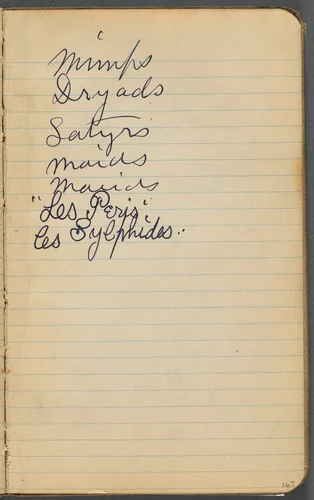 Nimps
Dryads
Satyrs
Maids
"Les Peris"
Les Sylphides..
167